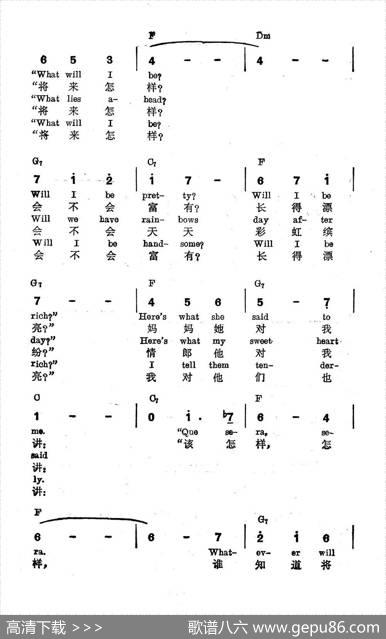 F Dm
6 5 3 | 4 - - | 4 - - |
"What will I be?
"将 来 怎 样?
"What lies a- head?
"将 来 怎 样?
"What will I be?
"将 来 怎 样?
G7 C7 F
7 i 2 | i 7 - | 6 7 i |
Will I be pret- ty? Will I be
会 不 会 富 有? 长 得 漂
Will we have rain- bows day af- ter
会 不 会 天 天 彩 虹 缤
Will I be hand- some? Will I be
会 不 会 富 有? 长 得 漂
G7 F G7
7 - - | 4 5 6 | 5 - 7 |
rich?" Here's what she said to
亮?" 妈 妈 她 对 我
day?" Here's what my sweet heart
纷?" 情 郎 他 对 我
rich?" I tell them ten- der-
亮?" 我 对 他 们 也
C C7 F
1 - - | 0 i. b7 | 6 - 4 |
me. "Que se- ra, se-
讲: "该 怎 样, 怎
said
讲:
ly.
讲:
F G7
6 - - | 6 - 7 | 2 i 6 |
ra. What- ev- er will
样, 谁 知 道 将
高清下载 >>> 歌谱八六 www.gepu86.com